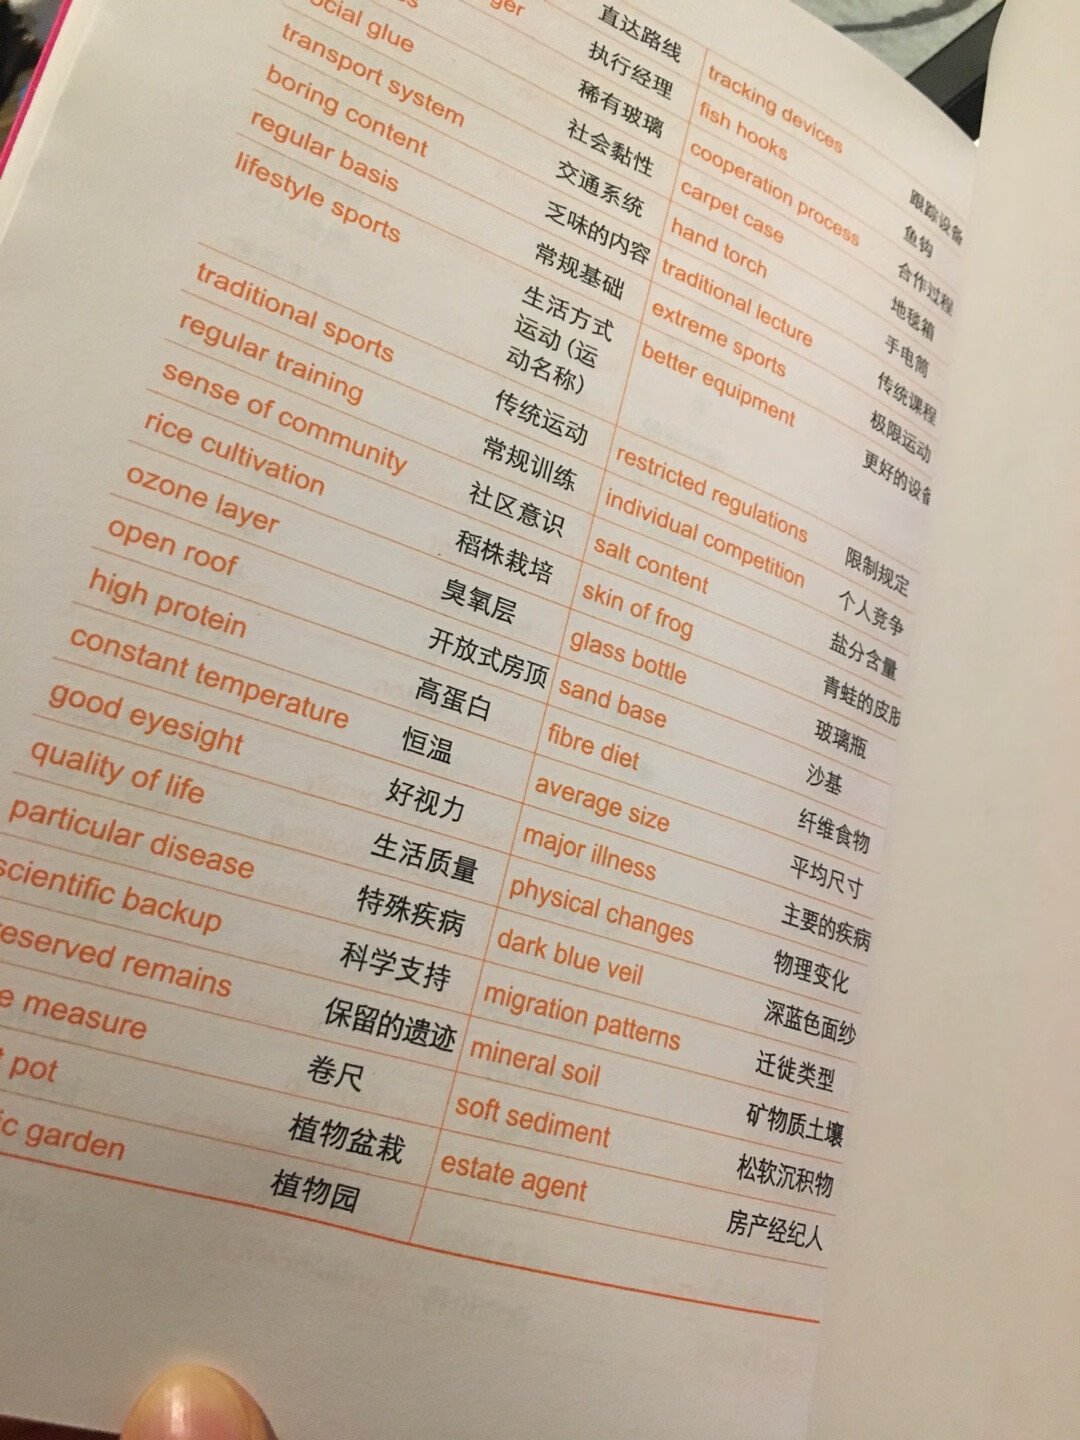 直达路线
ger 执行经理
es 稀有玻璃
ocial glue 社会黏性
transport system 交通系统
boring content 乏味的内容
regular basis 常规基础
lifestyle sports 生活方式
运动 (运
动名称)
traditional sports 传统运动
regular training 常规训练
sense of community 社区意识
rice cultivation 稻株栽培
ozone layer 臭氧层
open roof 开放式房顶
high protein 高蛋白
constant temperature 恒温
good eyesight 好视力
quality of life 生活质量
particular disease 特殊疾病
scientific backup 科学支持
eserved remains 保留的遗迹
e measure 卷尺
t pot 植物盆栽
ic garden 植物园
tracking devices 跟踪设备
fish hooks 鱼钩
cooperation process 合作过程
carpet case 地毯箱
hand torch 手电筒
traditional lecture 传统课程
extreme sports 极限运动
better equipment 更好的设备
restricted regulations 限制规定
individual competition 个人竞争
salt content 盐分含量
skin of frog 青蛙的皮肤
glass bottle 玻璃瓶
sand base 沙基
fibre diet 纤维食物
average size 平均尺寸
major illness 主要的疾病
physical changes 物理变化
dark blue veil 深蓝色面纱
migration patterns 迁徙类型
mineral soil 矿物质土壤
soft sediment 松软沉积物
estate agent 房产经纪人